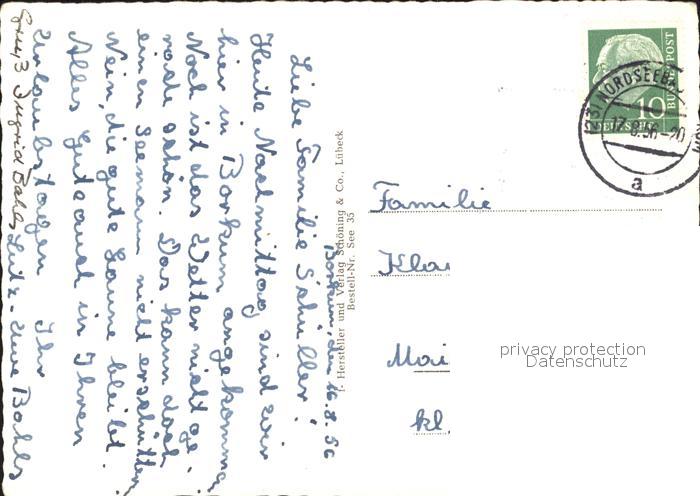 Borkum, den 16.8.56
Liebe Familie Schüller!
Heute Nachmittag sind wir
hier in Borkum angekommen
Noch ist das Wetter nicht ge-
rade schön. Das kann doch
einen Seemann nicht erschüttern
Nein, die gute Laune bleibt.
Alles Gute auch in Ihren
Urlaubstagen Ihr
Lutz. Bahls
Gruß Ingrid Bahls
I- Hersteller und Verlag Schöning & Co., Lübeck
Bestell-Nr. See 35
Familie
Klau
Mai
kl.
privacy protection
Datenschutz
DEUTSCHE BUNDESPOST
10
(23) NORDSEEB
17.8.56-20
a